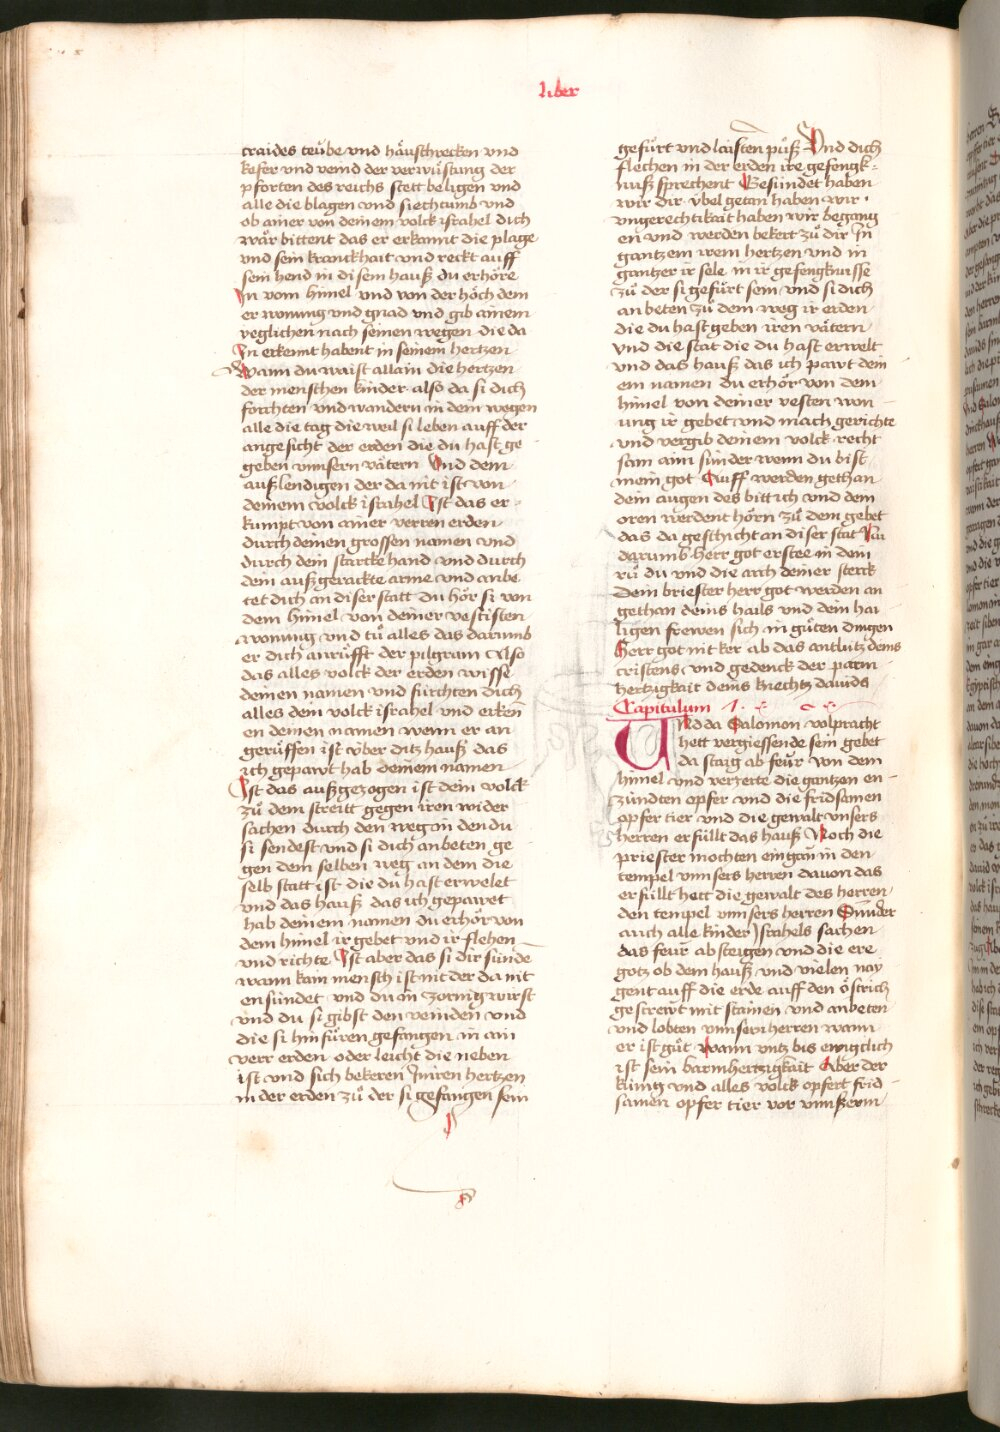 liber
traides teube vnd häuschrecken vnd
kefer vnd veind der verwüstung der
pforten des reichs stett beligen vnd
alle die blagen vnd siechtumb vnd
ob ainer von deinem volck israhel dich
wär bittent das er erkannt die plage
vnd sein kranckhait vnd reckt auff
sein hend in disem hauß du erhöre
In vom himel vnd von der höch dem
er wonung vnd gnad vnd gib ainem
yeglichen nach seinen wegen die da
In erkennt habent in seinem hertzen
Wann du waist allain die hertzen
der menschen kinder also da si dich
fürchten vnd wandern in dem wegen
alle die tag die weil si leben auff der
angesicht der erden die du hast ge
geben vnnsern vätern Vnd dem
außlendigen der da nit ist von
deinem volck israhel Ist das er
kumpt von ainer verren erden
durch deinen grossen namen vnd
durch dein starcke hand vnd durch
dein außgerackte arme vnd anbe
tet dich an diser statt du hör si von
dem himel von deiner vestisten
wonung vnd tů alles das darumb
er dich anrüfft der pilgram Also
das alles volck der erden wisse
deinen namen vnd fürchten dich
alles dein volck israhel vnd erken
en deinen namen wenn er an
gerüffen ist vber ditz hauß das
ich gepawt hab deinem namen
Ist das außgezogen ist dein volck
zů dem streitt gegen iren wider
sachen durch den weg in den du
si sendest vnd si dich anbeten ge
gen dem selben weg an dem die
selb statt ist die du hast erwelet
vnd das hauß das ich gepawet
hab deinem namen du erhör von
dem himel ir gebet vnd ir flehen
vnd richte Ist aber das si dir sünde
wann kain mensch ist nit der da nit
en sündet vnd du in zornig wirst
vnd du si gibst den veinden vnd
die si hin füren gefangen in ain
verr erden oder leicht die neben
ist vnd sich bekeren In iren hertzen
in der erden zů der si gefangen sein
gefürt vnd laisten půß Vnd dich
flechen in der erden ire gefengk
nuß sprechent Gesündet haben
wir dir vbel getan haben wir
vngerechtikait haben wir begang
en vnd werden bekert zů dir In
gantzem irem hertzen vnd in
gantzer ir sele in ir gefengknusse
zů der si gefürt sein vnd si dich
an beten zů dem weg ir erden
die du hast geben iren vätern
vnd die stat die du hast erwelt
vnd das hauß das ich pawt dein
em namen du erhör von dem
himel von deiner vesten won
ung ir gebet vnd mach gerichte
vnd vergib deinem volck recht
sam aim sünder wenn du bist
mein got Auff werden gethan
dein augen des bitt ich vnd dem
oren werdent hörn zů dem gebet
das da geschicht an diser stat Nun
darumb herr got erstee in dein
rů du vnd die arch deiner sterck
Dein briester herr got werden an
gethan deins hails vnd dein hai
ligen frewen sich in güten dingen
Herr got nit ker ab das antlütz deins
cristens vnd gedenck der parm
hertzigkait deins knechtz dauids
Capitulum
Und da Salomon volpracht
hett vergiessende sein gebet
da staig ab feur von dem
himel vnd verzerte die gantzen en
zündten opfer vnd die fridsamen
opfer tier vnd die gewalt vnsers
herren erfüllt das hauß Noch die
priester mochten eingan in den
tempel vnnsers herren dauon das
erfüllt hett die gewalt des herren
den tempel vnnsers herren Sunder
auch alle kinder Israhels sachen
das feur absteigen vnd die ere
gotz ob dem hauß vnd vielen nay
gent auff die erde auff den östrich
gestrewt mit stainen vnd anbeten
vnd lobten vnnsern herren wann
er ist gůt wann vntz bis ewigclich
ist sein barmhertzigkait Aber der
künig vnd alles volck opfert frid
samen opfer tier vor vnnserm